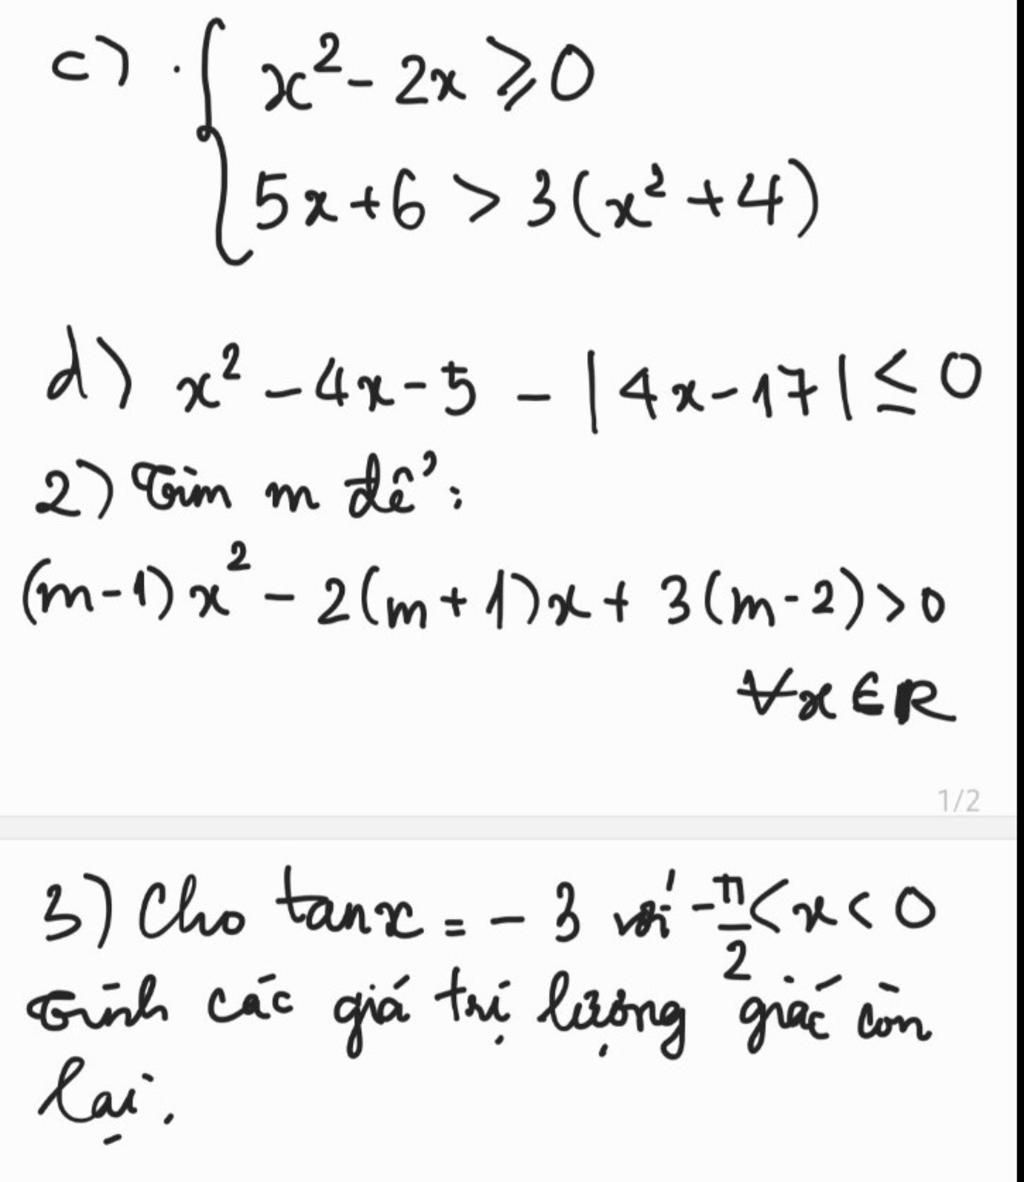 c) . { x² - 2x ⩾ 0
5x + 6 > 3(x² + 4)
d) x² - 4x - 5 - |4x - 17| ≤ 0
2) Tìm m để :
(m-1)x² - 2(m+1)x + 3(m-2) > 0
∀x ∈ R
1/2
3) Cho tanx = - 3 với -π/2 < x < 0
Tính các giá trị lượng giác còn
lại.